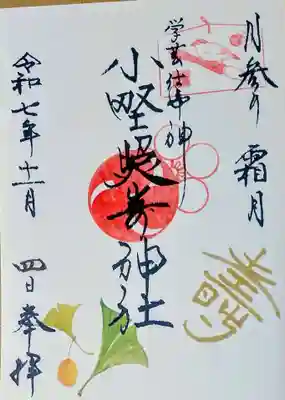 月参り 霜月
学芸仕事神
小野照崎神社
令和七年十一月 四日奉拝